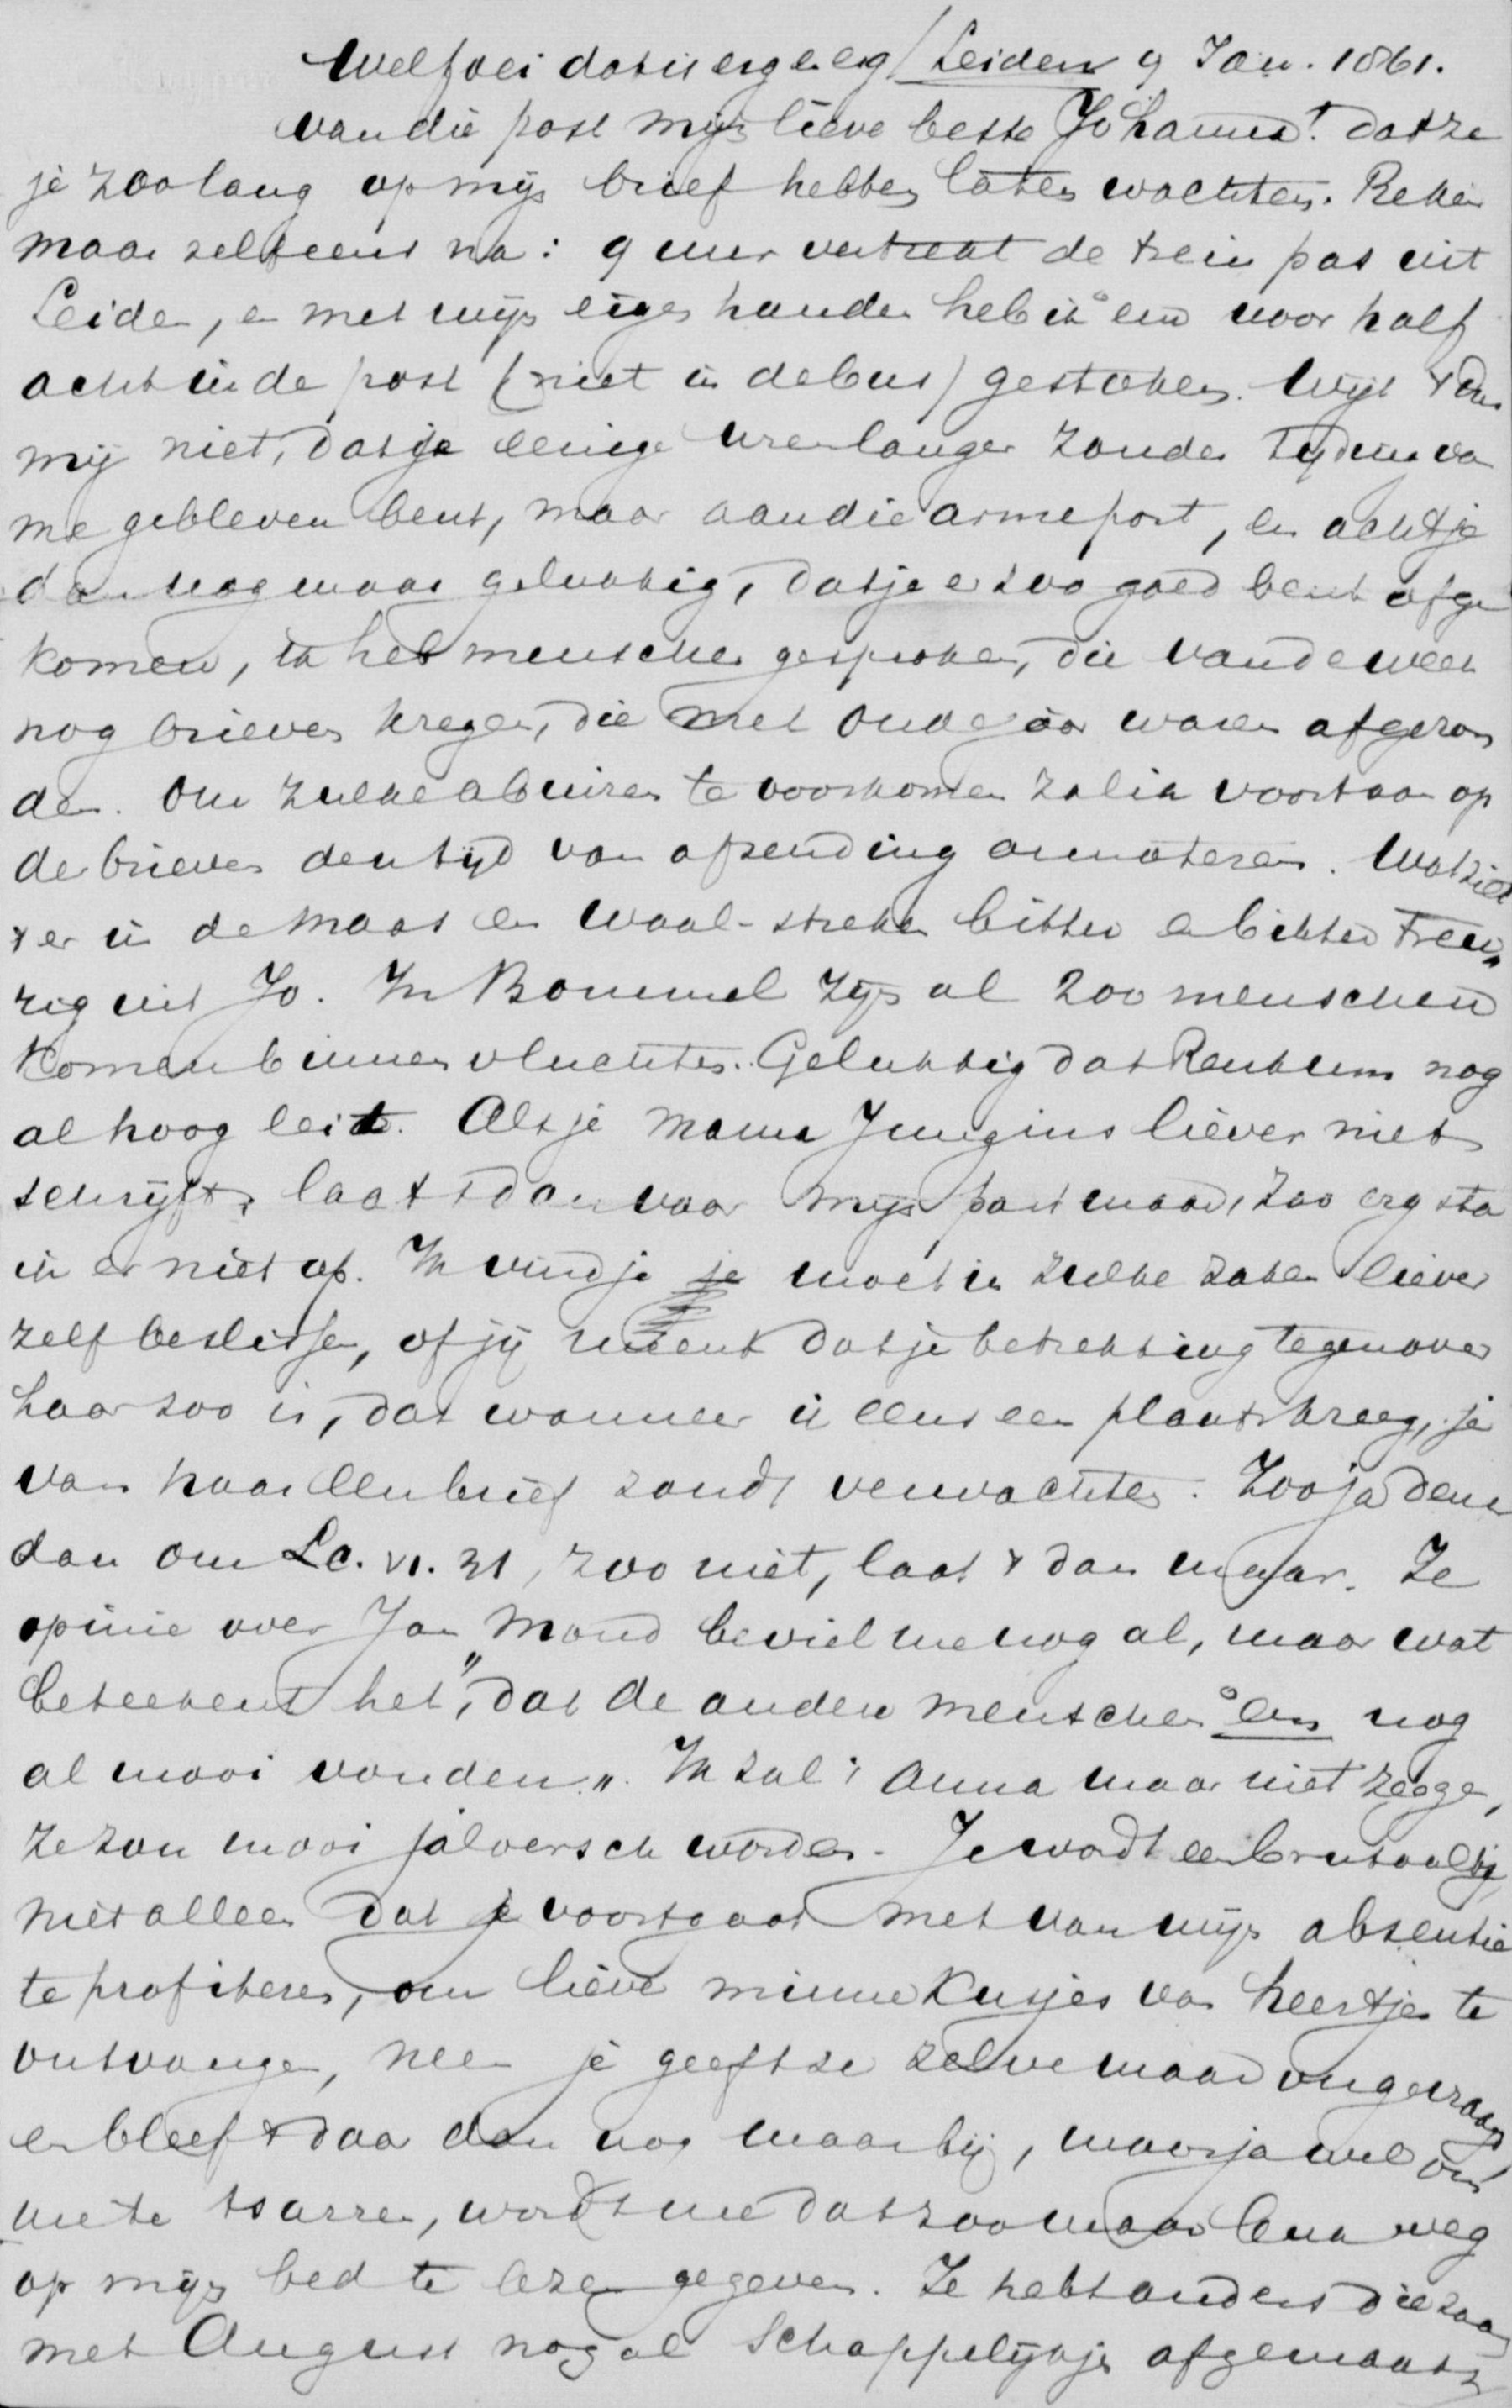 Wel foei dat is erg en erg / Leiden 9 Jan. 1861.
van die post mijn lieve beste Johanna! dat ze
je zoo lang op mijn brief hebben laten wachten. Reken
maar zelf eens na: 9 uur vertrekt de trein pas uit
Leiden, en met mijn eigen handen heb ik em voor half
acht in de post (niet in de bus) gestoken. Wijt 't dus
mij niet, dat je eenige uren langer zonder tijding van
me gebleven bent, maar aan die arme post, en acht je
dan nog maar gelukkig, dat je er zoo goed bent afge
komen, ik heb menschen gesproken, die van de week
nog brieven kregen, die met Oude jaar waren afgezon
den. Om zulke abuizen te voorkomen zal ik voortaan op
de brieven den tijd van afzending annoteren. Wat ziet
't er in de Maas en Waal-streken bitter en bitter treu„
rig uit Jo. In Bommel zijn al 200 menschen
komen binnen vluchten. Gelukkig dat Renkum nog
al hoog leit. Als je Mama Jungius liever niet
schrijft, laat 't dan voor mijn part maar, zoo erg sta
ik er niet op. Ik vind je je moet in zulke zaken liever
zelf beslissen, of jij meent dat je betrekking tegenover
haar zoo is, dat wanneer ik eens een plaats kreeg, je
van haar een brief zoudt verwachten. Zoo ja denk
dan om Lc. VI. 31, zoo niet, laat 't dan maar. Je
opinie over Jan Mond beviel me nog al, maar wat
beteekent het, „dat de andere menschen em nog
al mooi vonden„. Ik zal 't Anna maar niet zeggen,
ze zou mooi jaloersch worden. Je wordt een brutaaltje,
niet alleen dat je voortgaat met van mijn absentie
te profiteren, om lieve minne kusjes van heertjes te
ontvangen, neen je geeft ze zelve maar ongevraagd,
en bleef 't daar dan nog maar bij, maar ja wel om
me te sarren, wordt me dat zoo maar leuk weg
op mijn bed te lezen gegeven. Je hebt anders die zaak
met August nog al schappelijkjes afgemaakt,